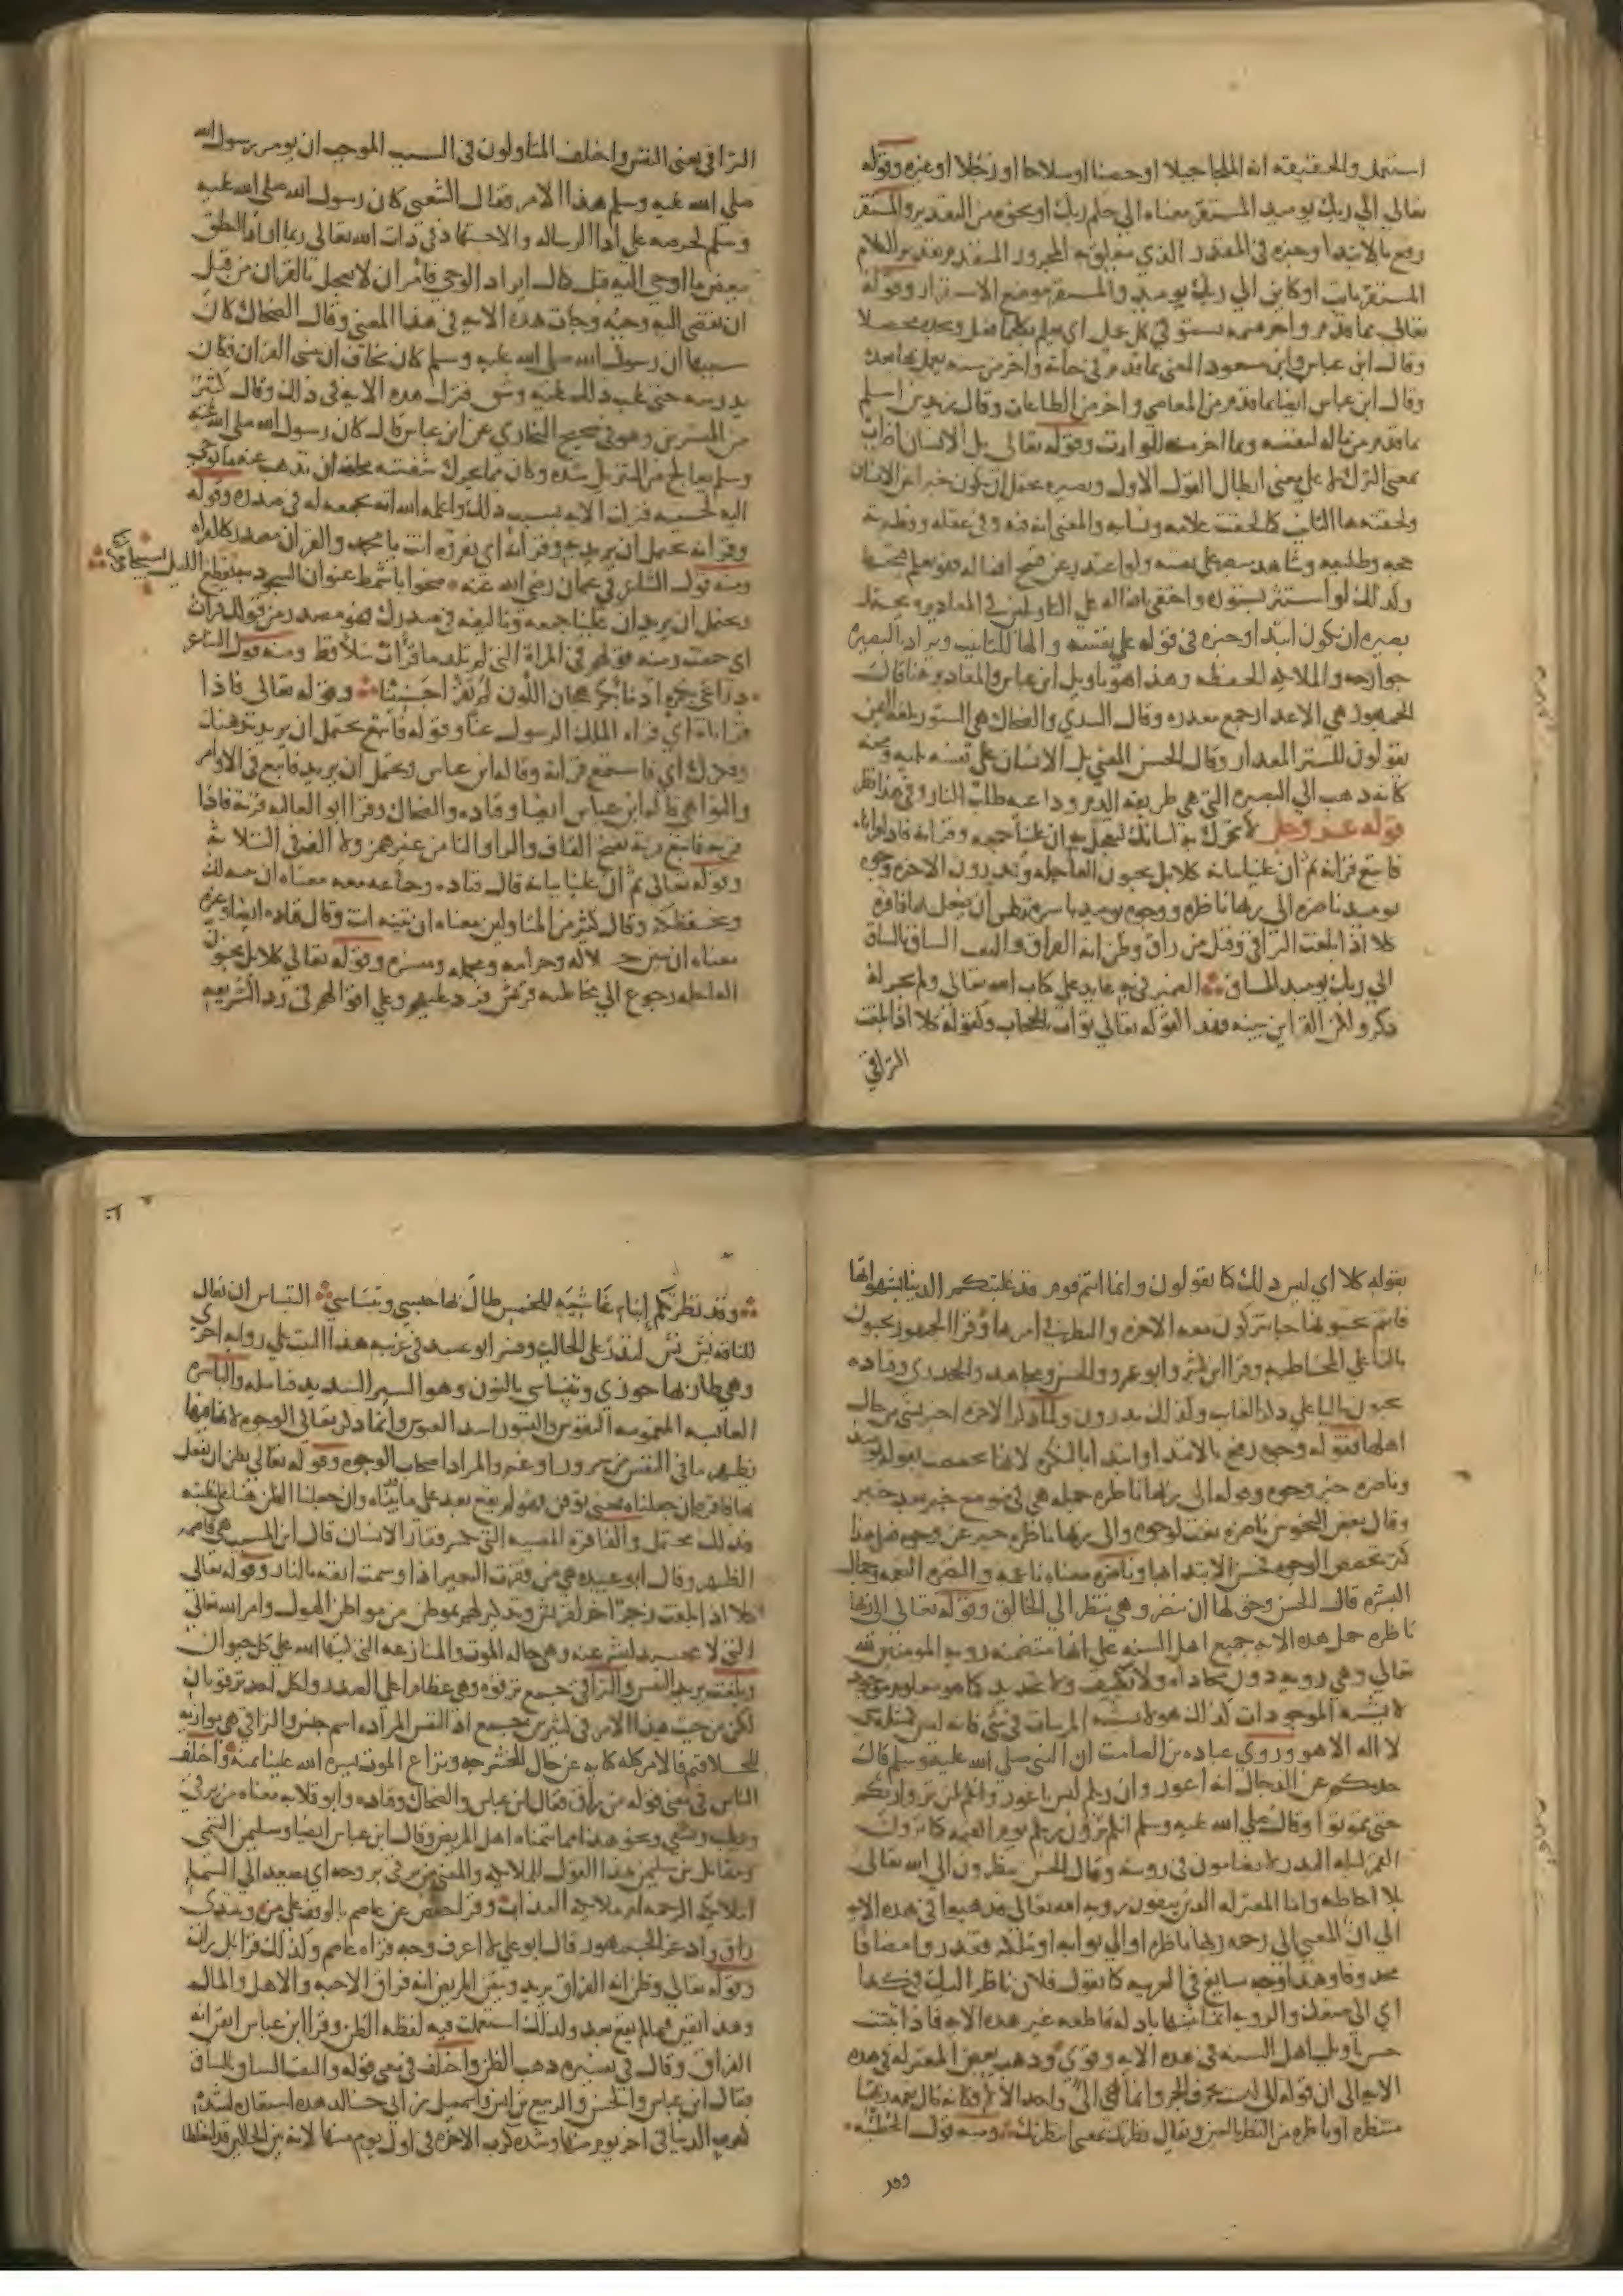 استعمل والحقيقة انه الملجا جبلا او حصنا او سلاحا او رجلا او غيره وقوله
تعالى الي ربك يوميد المستقر معناه الي حكم ربك او نحوه من التقدير والمستقر
رفع بالابتدا وخبره في المقدر الذي يتعلق به المجرور المتقدم تقدير الكلام
المستقر ثابت او كاين الي ربك يوميد والمستقر موضع الاستقرار وقوله
تعالى بما قدم واخر قسمة تستوفي كل عمل اي يعلم بكل ما فعل ويجده محصلا
وقال ابن عباس وابن مسعود المعنى بما قدم في حياته واخر من سنة يعمل بها بعده
وقال ابن عباس ايضا بما قدم من المعاصي واخر من الطاعات وقال زيد بن اسلم
بما قدم من ماله لنفسه وبما اخر منه للوارث وقوله تعالى بل الانسان اضراب
بمعنى الترك لا على معنى ابطال القول الاول وبصيرة يحتمل ان يكون خبرا عن الانسان
ولحقته هاء التانيث كما لحقت علامة ونسابة والمعنى انه فيه وفي عقله وفطرته
حجة وطليعة وشاهد مبصر على نفسه ولو اعتذر عن قبيح افعاله فهو يعلم قبحها
وكذلك لو استتر بستوره واخفى افعاله على التاويلين في المعاذير ويحتمل
بصيرة ان يكون ابتدا وخبره في قوله على نفسه والها للتانيث ويراد بالبصيرة
جوارحه والملايكة الحفظة وهذا هو تاويل ابن عباس والمعاذير هنا قالت
الجمهور هي الاعذار جمع معذرة وقال السدي والضحاك هي الستور بلغة اليمن
يقولون للستر المعذار وقال الحسن المعنى بل الانسان على نفسه بلية ومحنة
كانه ذهب الي البصيرة التي هي طريقة الدم وداعية طلب الثار وفي هذا نظر
قوله عز وجل لا تحرك به لسانك لتعجل به ان علينا جمعه وقرانه فاذا قراناه
فاتبع قرانه ثم ان علينا بيانه كلا بل يحبون العاجلة ويذرون الاخرة وجوه
يوميد ناضرة الي ربها ناظرة ووجوه يوميد باسرة تظن ان يفعل بها فاقرة
كلا اذا بلغت التراقي وقيل من راق وظن انه الفراق والتفت الساق بالساق
الي ربك يوميد المساق الضمير في به عايد على كتاب الله تعالى ولم يجر له
ذكر ولكن القراين تبينه فهذا كقوله تعالى توارت بالحجاب وكقوله كلا اذا بلغت
التراقي
التراقي يعني النفس واختلف المتاولون في السبب الموجب ان يومر رسول الله
صلى الله عليه وسلم هذا الامر فقال الشعبي كان رسول الله صلى الله عليه
وسلم لحرصه على ادا الرسالة والاجتهاد في ذات الله تعالى ربما اراد النطق
ببعض ما اوحي اليه قبل كمال ايراد الوحي فامر ان لا يعجل بالقران من قبل
ان يقضى اليه وحيه وجات هذه الاية في هذا المعنى وقال الضحاك كان
سببها ان رسول الله صلى الله عليه وسلم كان يخاف ان ينسى القران فكان
يدرسه حتى غلب ذلك عليه وشق فنزلت هذه الاية في ذلك وقال كثير
من المفسرين وهو في صحيح البخاري عن ابن عباس قال كان رسول الله صلى الله عليه
وسلم يعالج من التنزيل شدة وكان مما يحرك شفتيه مخافة ان يذهب عنه ما يوحى
اليه لحينه فنزلت الاية بسبب ذلك واعلمه الله انه يجمعه له في صدره وقوله
وقرانه يحتمل ان يريد به وقراته اي تقروه انت يا محمد والقران مصدر كالقراة
ومنه قول الشاعر في عثمان رضي الله عنه ضحوا باشمط عنوان السجود به يقطع الليل تسبيحا وقرانا
ويحتمل ان يريد ان علينا جمعه وتاليفه في صدرك فهو مصدر من قولك قرات
اي جمعت ومنه قولهم في المراة التي لم تلد ما قرات سلا قط ومنه قول الشاعر
ذراعي بكرة ادما بكر هجان اللون لم تقرا جنينا وقوله تعالى فاذا
قراناه اي قراه الملك الرسول عنا وقوله فاتبع يحتمل ان يريد بذهنك
وفكرك اي فاستمع قراته وقاله ابن عباس ويحتمل ان يريد فاتبع في الاوامر
والنواهي قاله ابن عباس ايضا وقتادة والضحاك وقرا ابو العالية قرته فاذا
قرته فاتبع قرته بفتح القاف والرا والتا من غير همز ولا الف في الثلاثة
وقوله تعالى ثم ان علينا بيانه قال قتادة وجماعة معه معناه ان نبينه لك
ونحفظكه وقال كثير من المتاولين معناه ان تبينه انت وقال قتادة ايضا وغيره
معناه ان نبين حلاله وحرامه ومجمله ومفسره وقوله تعالى كلا بل تحبون
العاجلة رجوع الي مخاطبة قريش فرد عليهم وعلى اقوالهم في رد الشريعة
بقوله كلا اي ليس ذلك كما يقولون وانما انتم قوم قد غلبتكم الدنيا بشهواتها
فانتم تحبونها حبا تتركون معه الاخرة والنظر في امرها وقرا الجمهور تحبون
بالتا على المخاطبة وقرا ابن كثير وابو عمرو والحسن ومجاهد والجحدري وقتادة
يحبون باليا على ذكر الغايب وكذلك يذرون ولما ذكر الاخرة اخبر بشي من حال
اهلها بقوله وجوه رفع بالابتدا وابتدا بالنكرة لانها تخصصت بقوله يوميد
وناضرة خبر وجوه وقوله الي ربها ناظرة جملة هي في موضع خبر بعد خبر
وقال بعض النحويين ناضرة نعت لوجوه والي ربها ناظرة خبر عن وجوه فعلى هذا
كثر تخصص الوجوه فحسن الابتدا بها وناضرة معناه ناعمة والنضرة النعمة وجمال
البشرة قال الحسن وحق لها ان تنضر وهي تنظر الي الخالق وقوله تعالى الي ربها
ناظرة حمل هذه الاية جميع اهل السنة على انها متضمنة روية المومنين لله
تعالى وهي روية دون محاذاة ولا تكييف ولا تحديد كما هو معلوم موجود
لا يشبه الموجودات كذلك هو لا يشبه المرييات في شي فانه ليس كمثله شي
لا اله الا هو وروى عبادة بن الصامت ان النبي صلى الله عليه وسلم قال
حدثتكم عن الدجال انه اعور وان ربكم ليس باعور وانكم لن تروا ربكم
حتى تموتوا وقال صلى الله عليه وسلم انكم ترون ربكم يوم القيمة كما ترون
القمر ليلة البدر لا تضامون في رويته وقال الحسن ينظرون الي الله تعالى
بلا احاطة واما المعتزلة الذين ينفون روية الله تعالى فذهبوا في هذه الاية
الي ان المعنى الي رحمة ربها ناظرة او الي ثوابه او ملكه فقدروا مضافا
محذوفا وهذا وجه سايغ في العربية كما تقول فلان ناظر اليك في كذا
اي الي صنعك والروية انما نثبتها بادلة قاطعة غير هذه الاية فاذا ثبتت
حسن تاويل اهل السنة في هذه الاية وقوي وذهب بعض المعتزلة في هذه
الاية الي ان قوله الي ليست بحرف الجر وانما هي الي واحد الالا فكانه قال نعمة ربها
منتظرة او ناظرة من النظر بالعين ويقال نظرتك بمعنى انتظرتك ومنه قول الحطيئة
وقد
وقد نظرتكم ايناء غاشية للخمس طال بها حبسي وتنساسي التنساس ان يقال
للناقة نس نس لتدر على الحالب وفسر ابو عبيد في غريبه هذا البيت على رواية اخرى
وهي طال بها حوزي وتنساسي بالنون وهو السير الشديد فتامله والباسرة
العابسة المغمومة النفوس والبسور اشد العبوس وانما ذكر تعالى الوجوه لانه فيها
يظهر ما في النفس من سرور او غم والمراد اصحاب الوجوه وقوله تعالى تظن ان يفعل
بها فاقرة ان جعلناه بمعنى توقن فهو لم يقع بعد على ما بيناه وان جعلنا الظن هنا على غلبته
فذلك محتمل والفاقرة المصيبة التي تكسر فقار الانسان قال ابن المسيب هي قاصمة
الظهر وقال ابو عبيدة هي من فقرت البعير اذا وسمت انفه بالنار وقوله تعالى
كلا اذا بلغت زجر اخر لقريش وتذكير لهم بموطن من مواطن الهول وامر الله تعالى
الذي لا محيد لبشر عنه وهي حالة الموت والمنازعة التي كتبها الله على كل حيوان
وبلغت يريد النفس والتراقي جمع ترقوة وهي عظام اعلى الصدر ولكل احد ترقوتان
لكن من حيث هذا الامر في كثيرين جمع اذ النفس المرادة اسم جنس والتراقي هي موازية
للحلاقيم فالامر كله كناية عن حال الحشرجة ونزاع الموت يسره الله علينا بمنه واختلف
الناس في معنى قوله من راق فقال ابن عباس والضحاك وقتادة وابو قلابة معناه من يرقي
ويطب ويشفي ونحو هذا مما يتمناه اهل المريض وقال ابن عباس ايضا وسليمن التيمي
ومقاتل بن سليمن هذا القول للملايكة والمعنى من يرقى بروحه اي يصعد الي السما
املايكة الرحمة ام ملايكة العذاب وقرا حفص عن عاصم بالوقف على من ويبتدي
راق وادغم الجمهور قال ابو علي لا اعرف وجه قراة عاصم وكذلك قرا بل ران
وقوله تعالى وظن انه الفراق يريد وتيقن المريض انه فراق الاحبة والاهل والمال
وهذا يقين فيما لم يقع بعد ولذلك استعملت فيه لفظة الظن وقرا ابن عباس ايقن انه
الفراق وقال في تفسيره ذهب الظن واختلف في معنى قوله والتفت الساق بالساق
فقال ابن عباس والحسن والربيع بن انس واسمعيل بن ابي خالد هذه استعارة لشدة
كرب الدنيا في اخر يوم منها وشدة كرب الاخرة في اول يوم منها لانه بين الحالين قد اختلطا